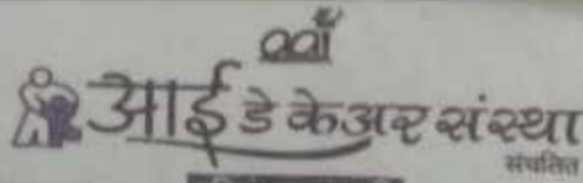 आई डे केअर संस्था
संचलित